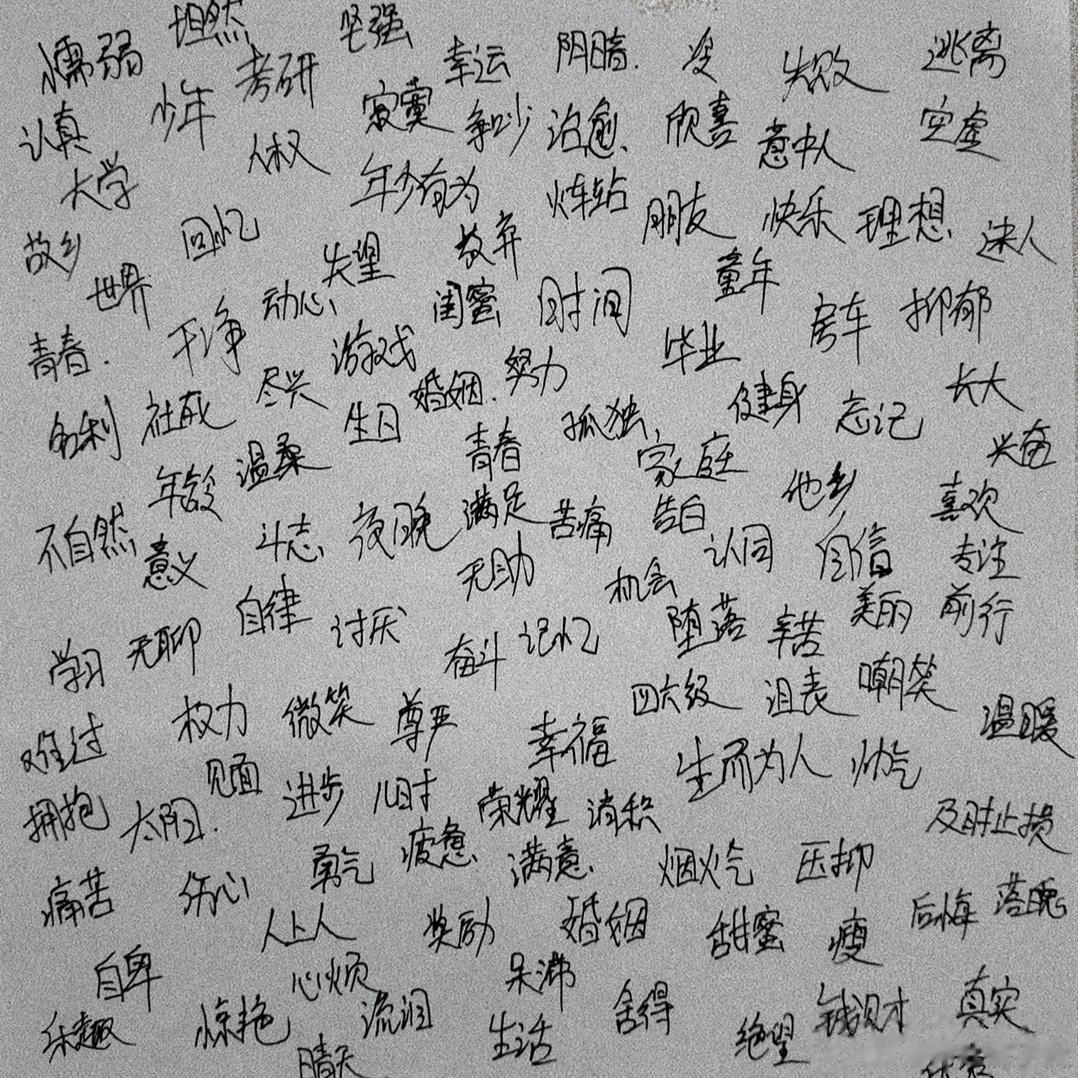 懦弱 坦然 坚强 幸运 阴暗. 没 失败 逃离
认真 少年 考研 寂寞 争吵 治愈 欣喜 意中人 空虚
大学 人权 年少有为 火车站 朋友 快乐 理想 迷人
故乡 回忆 失望 放弃 童年
世界 动心 闺蜜 时间 房车 抑郁
青春. 干净 游戏 毕业
名利 社死 尽兴 生日 婚姻. 努力 孤独, 健身 忘记 长大
年龄 温柔 青春 家庭 他乡 兴奋
不自然 意义 斗志 夜晚 满足 苦痛 告白 认同 自信 喜欢 专注
无助 机会
学习 无聊 自律 讨厌 奋斗 记忆 堕落 辛苦 美丽 前行
难过 权力 微笑 尊严 幸福 四六级 沮丧 嘲笑 温暖
拥抱 太阳. 见面 进步 儿时 荣耀 消积 生而为人 帅气 及时止损
痛苦 伤心 勇气 疲惫 满意 烟火气 压抑
人上人 奖励 婚姻 甜蜜 瘦 后悔 落魄
自卑 心烦 呆滞
乐趣 惊艳 流泪 生活 舍得 绝望 钱财 真实
晴天